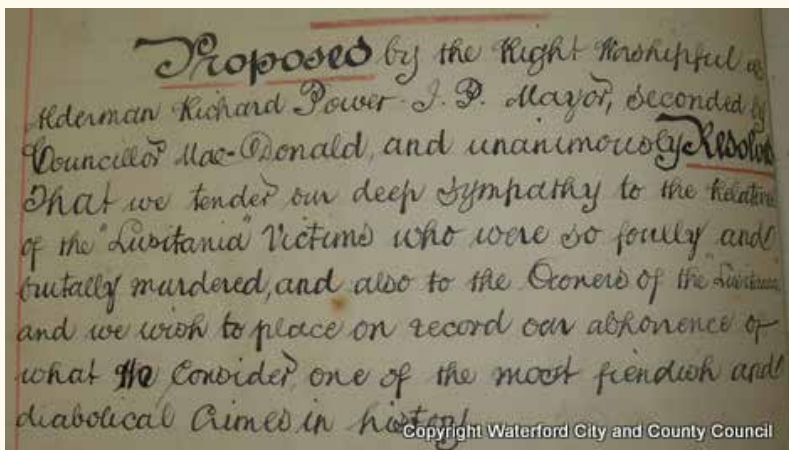 Proposed by the Right Worshipful
Alderman Richard Power J. P. Mayor, seconded by
Councillor Mac-Donald, and unanimously Resolved
That we tender our deep sympathy to the Relatives
of the "Lusitania" Victims who were so foully and
brutally murdered, and also to the Owners of the "Lusitania"
and we wish to place on record our abhorence of
what We Consider, one of the most fiendish and
diabolical Crimes in history
Copyright Waterford City and County Council